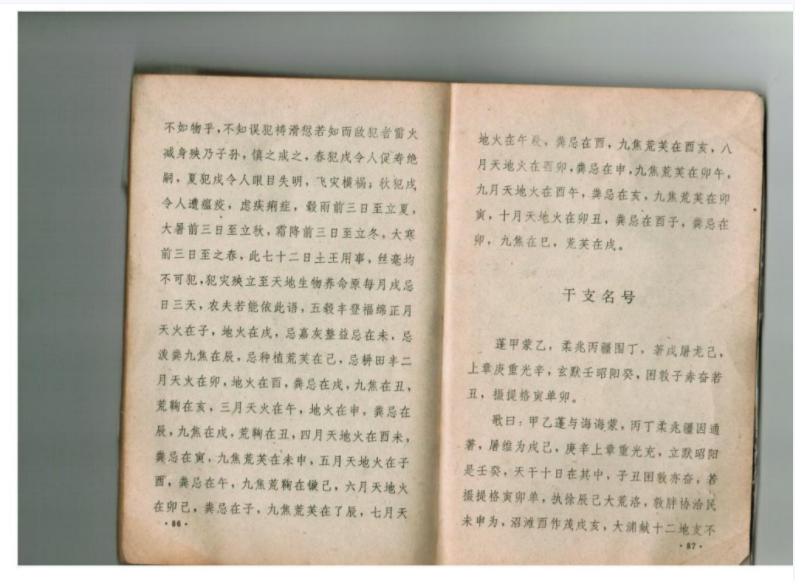 不如物乎，不知误犯祷滑愆若知而敌犯者雷火
减身殃乃子孙，慎之戒之，春犯戌令人促寿绝
嗣，夏犯戌令人眼目失明，飞灾横祸；秋犯戌
令人遭瘟疫，虐疾痢症，毂雨前三日至立夏，
大暑前三日至立秋，霜降前三日至立冬，大寒
前三日至之春，此七十二日土王用事，丝毫均
不可犯，犯灾殃立至天地生物养命原每月戌忌
日三天，农夫若能依此语，五毂丰登福绵正月
天火在子，地火在戌，忌嘉灰整益忌在未，忌
泼粪九焦在辰，忌种植荒芙在己，忌耕田丰二
月天火在卯，地火在酉，粪忌在戌，九焦在丑，
荒鞠在亥，三月天火在午，地火在申，粪忌在
辰，九焦在戌，荒鞠在丑，四月天地火在酉未，
粪忌在寅，九焦荒芙在未申，五月天地火在子
酉，粪忌在午，九焦荒鞠在做己，六月天地火
在卯己，粪忌在子，九焦荒芙在了辰，七月天
·86·
地火在午殴，粪忌在酉，九焦荒芙在酉亥，八
月天地火在酉卯，粪忌在申，九焦荒芙在卯午，
九月天地火在酉午，粪忌在亥，九焦荒芙在卯
寅，十月天地火在卯丑，粪忌在酉子，粪忌在
卯，九焦在巳，荒芙在戌。
干支名号
蓬甲蒙乙，柔兆丙疆圉丁，著戌屠龙己，
上章庚重光辛，玄默壬昭阳癸，困敦子赤奋若
丑，摄提格寅单卯。
歌曰：甲乙蓬与海海蒙，丙丁柔兆疆因通
著，屠维为戌己，庚辛上章重光充，立默昭阳
是壬癸，天干十日在其中，子丑困敦亦奋，若
摄提格寅卯单，执徐辰己大荒洛，敦胖协洽民
未申为，沼滩酉作茂戌亥，大浦献十二地支不
·87·